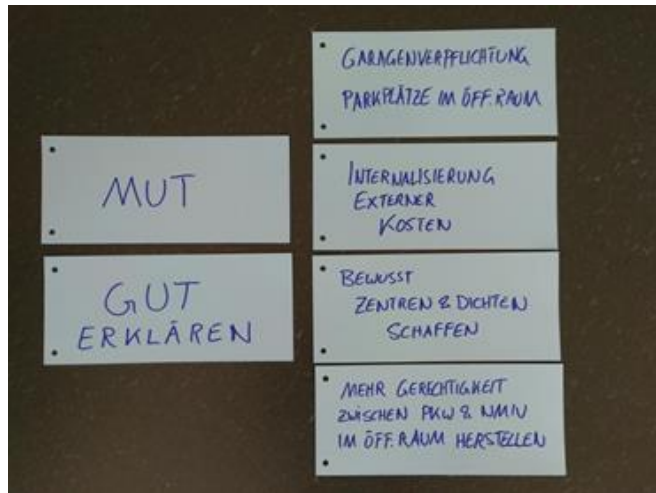 MUT
GUT
ERKLÄREN
GARAGENVERPFLICHTUNG
PARKPLÄTZE IM ÖFF. RAUM
INTERNALISIERUNG
EXTERNER
KOSTEN
BEWUSST
ZENTREN & DICHTEN
SCHAFFEN
MEHR GERECHTIGKEIT
ZWISCHEN PKW & NMIV
IM ÖFF. RAUM HERSTELLEN